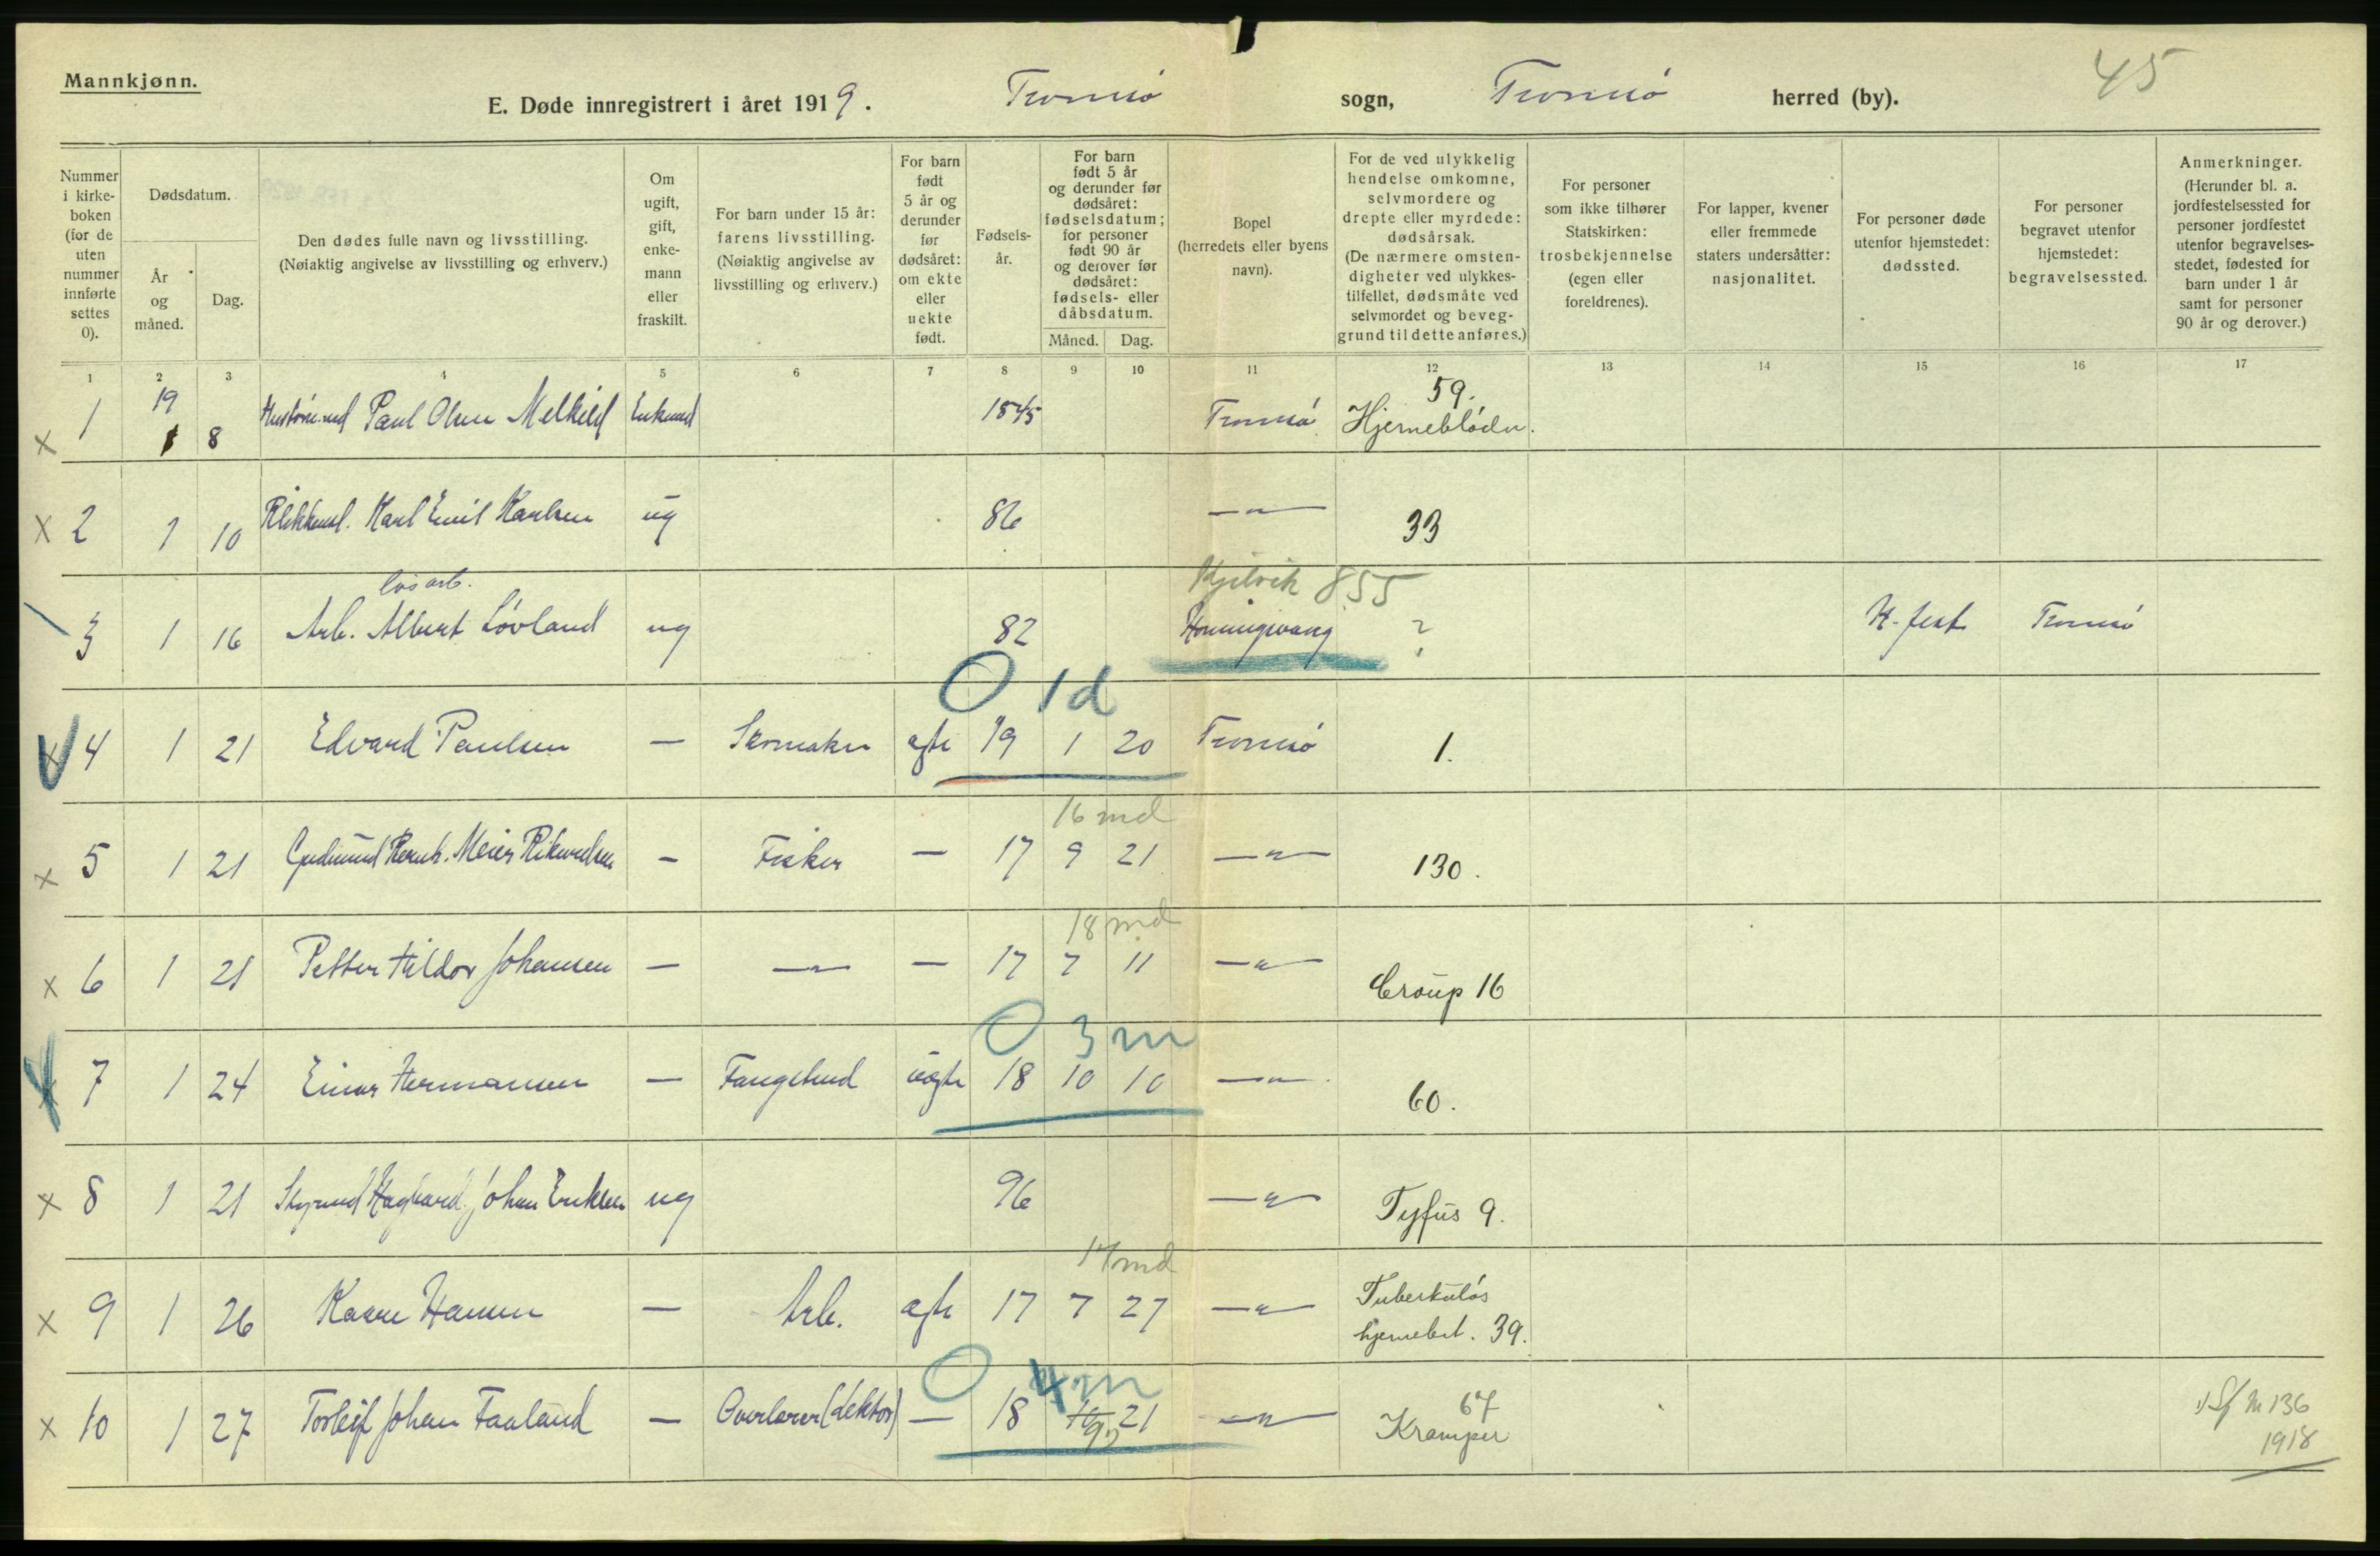 Mannkjønn.
45
E. Døde innregistrert i året 1919. Tromsø sogn, Tromsø herred (by).
Nummer i kirkeboken (for de uten nummer innførte settes 0).
Dødsdatum.
År og måned.
Dag.
Den dødes fulle navn og livsstilling. (Nøiaktig angivelse av livsstilling og erhverv.)
Om ugift, gift, enkemann eller fraskilt.
For barn under 15 år: farens livsstilling. (Nøiaktig angivelse av livsstilling og erhverv.)
For barn født 5 år og derunder før dødsåret: om ekte eller uekte født.
Fødselsår.
For barn født 5 år og derunder før dødsåret: fødselsdatum; for personer født 90 år og derover før dødsåret: fødsels- eller dåbsdatum.
Måned. Dag.
Bopel (herredets eller byens navn).
For de ved ulykkelig hendelse omkomne, selvmordere og drepte eller myrdede: dødsårsak. (De nærmere omstendigheter ved ulykkestilfellet, dødsmåte ved selvmordet og beveggrund til dette anføres.)
For personer som ikke tilhører Statskirken: trosbekjennelse (egen eller foreldrenes).
For lapper, kvener eller fremmede staters undersåtter: nasjonalitet.
For personer døde utenfor hjemstedet: dødssted.
For personer begravet utenfor hjemstedet: begravelsessted.
Anmerkninger. (Herunder bl. a. jordfestelsessted for personer jordfestet utenfor begravelsesstedet, fødested for barn under 1 år samt for personer 90 år og derover.)
1 2 3 4 5 6 7 8 9 10 11 12 13 14 15 16 17
x 1 19 1 8 Paul Olsen Melkild Enkemd 1845 Tromsø 59. Hjerneblødn.
x 2 1 10 Karl Emil Karlsen ug 86 —"— 33
løsarb.
Kjelvik 855
3 1 16 Arb. Albert Løvland ug 82 Honningsvaag ? H. fest Tromsø
0 1d
x 4 1 21 Edvard Paulsen — Skomaker ægte 19 1 20 Tromsø 1.
16 md
x 5 1 21 Gudmund Bernh. Meier Rikardsen — Fisker — 17 9 21 —"— 130.
18 md
x 6 1 21 Petter Hildor Johansen — —"— — 17 7 11 —"— Croup 16
0 3 m
x 7 1 24 Einar Hermansen — uægte 18 10 10 —"— 60.
x 8 1 21 Hagbard Johan Eriksen ug 96 —"— Tyfus 9.
17 md
x 9 1 26 Kaare Hansen — Arb. ægte 17 7 27 —"— Tuberkuløs
hjernebet. 39.
0 4 m
x 10 1 27 Torleif Johan Faaland — Overlærer (Lektor) — 18 10 9 21 —"— 67 Kramper
m 136
1918